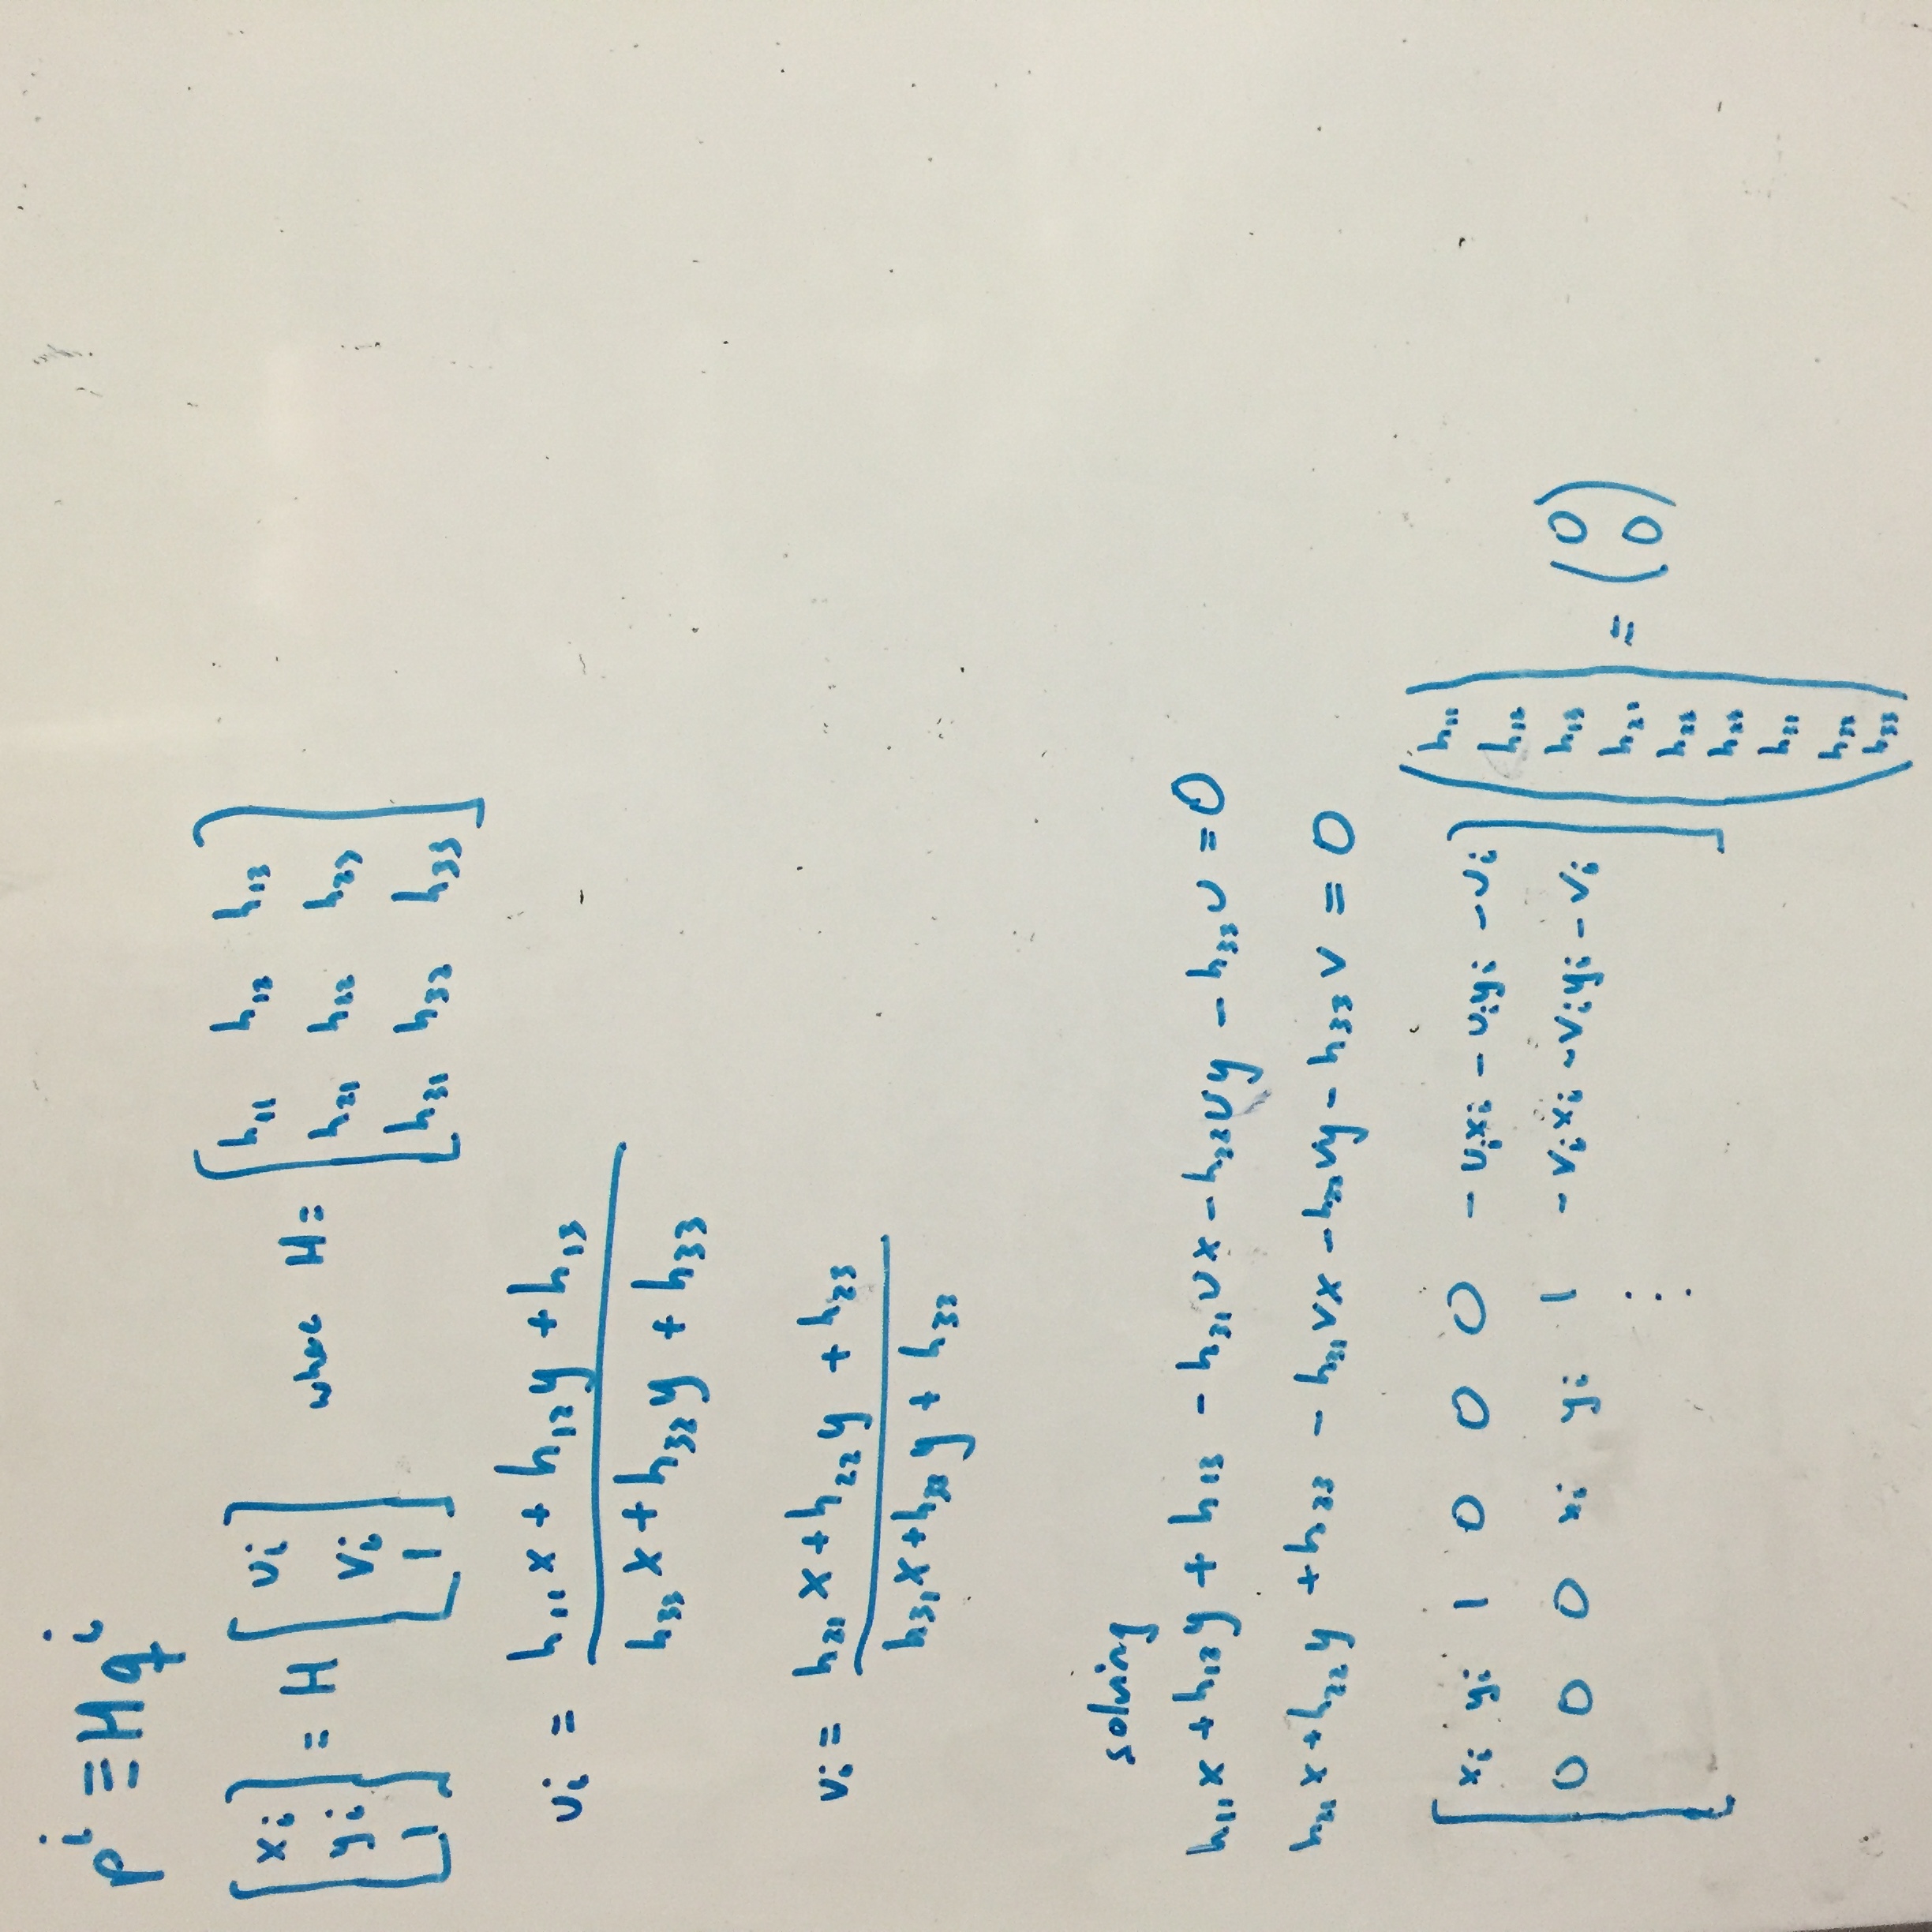 pⁱ ≡ Hqⁱ
[xᵢ yᵢ 1] = H [uᵢ vᵢ 1] where H = [h₁₁ h₁₂ h₁₃
h₂₁ h₂₂ h₂₃
h₃₁ h₃₂ h₃₃]
uᵢ = h₁₁x + h₁₂y + h₁₃
h₃₃x + h₃₂y + h₃₃
vᵢ = h₂₁x + h₂₂y + h₂₃
h₃₁x + h₃₂y + h₃₃
solving
h₁₁x + h₁₂y + h₁₃ - h₃₁ux - h₃₂uy - h₃₃u = 0
h₂₁x + h₂₂y + h₂₃ - h₃₁vx - h₃₂vy - h₃₃v = 0
[xᵢ yᵢ 1 0 0 0 -uᵢxᵢ -uᵢyᵢ -uᵢ
0 0 0 xᵢ yᵢ 1 -vᵢxᵢ -vᵢyᵢ -vᵢ
⋮]
(h₁₁
h₁₂
h₁₃
h₂₁
h₂₂
h₂₃
h₃₁
h₃₂
h₃₃)
= (0
0)